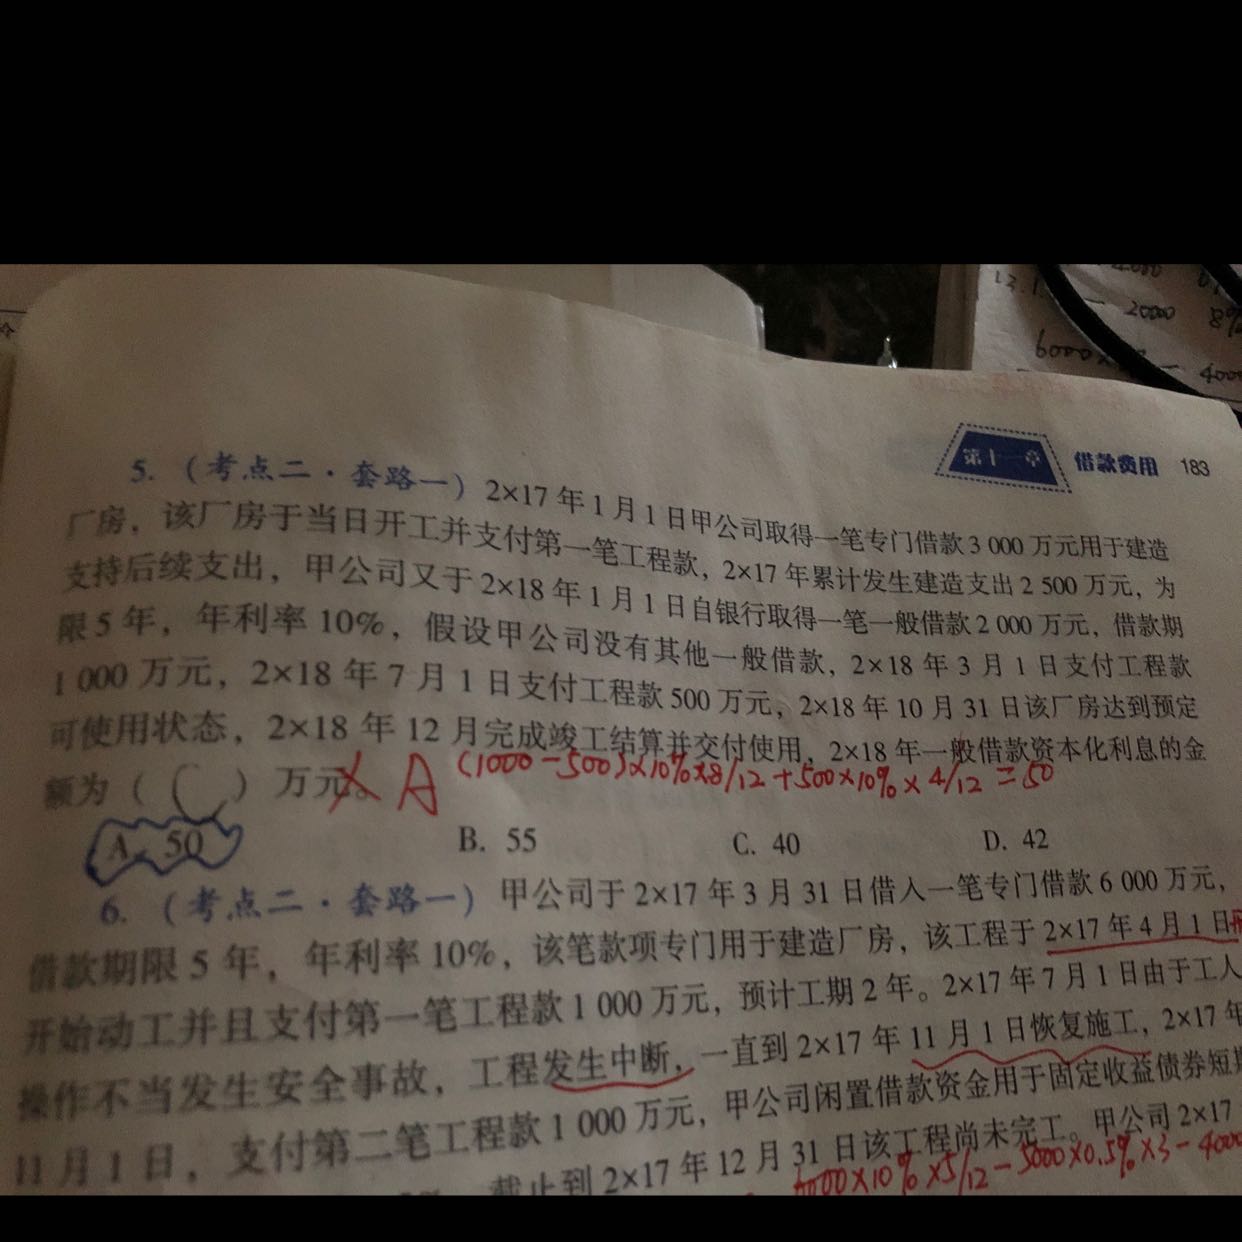 12.1.
2000 8%
第十一章 借款费用 183
5.（考点二·套路一）2×17年1月1日甲公司取得一笔专门借款3 000万元用于建造
厂房，该厂房于当日开工并支付第一笔工程款，2×17年累计发生建造支出2 500万元，为
支持后续支出，甲公司又于2×18年1月1日自银行取得一笔一般借款2 000万元，借款期
限5年，年利率10%，假设甲公司没有其他一般借款，2×18年3月1日支付工程款
1 000万元，2×18年7月1日支付工程款500万元，2×18年10月31日该厂房达到预定
可使用状态，2×18年12月完成竣工结算并交付使用，2×18年一般借款资本化利息的金
额为（C）万元。
× A (1000-500)×10%×8/12+500×10%×4/12=50
A. 50 B. 55 C. 40 D. 42
6.（考点二·套路一）甲公司于2×17年3月31日借入一笔专门借款6 000万元，
借款期限5年，年利率10%，该笔款项专门用于建造厂房，该工程于2×17年4月1日
开始动工并且支付第一笔工程款1 000万元，预计工期2年。2×17年7月1日由于工人
操作不当发生安全事故，工程发生中断，一直到2×17年11月1日恢复施工，2×17年
11月1日，支付第二笔工程款1 000万元，甲公司闲置借款资金用于固定收益债券短期
截止到2×17年12月31日该工程尚未完工。甲公司2×17
×10%×5/12-5000×0.5%×3-4000